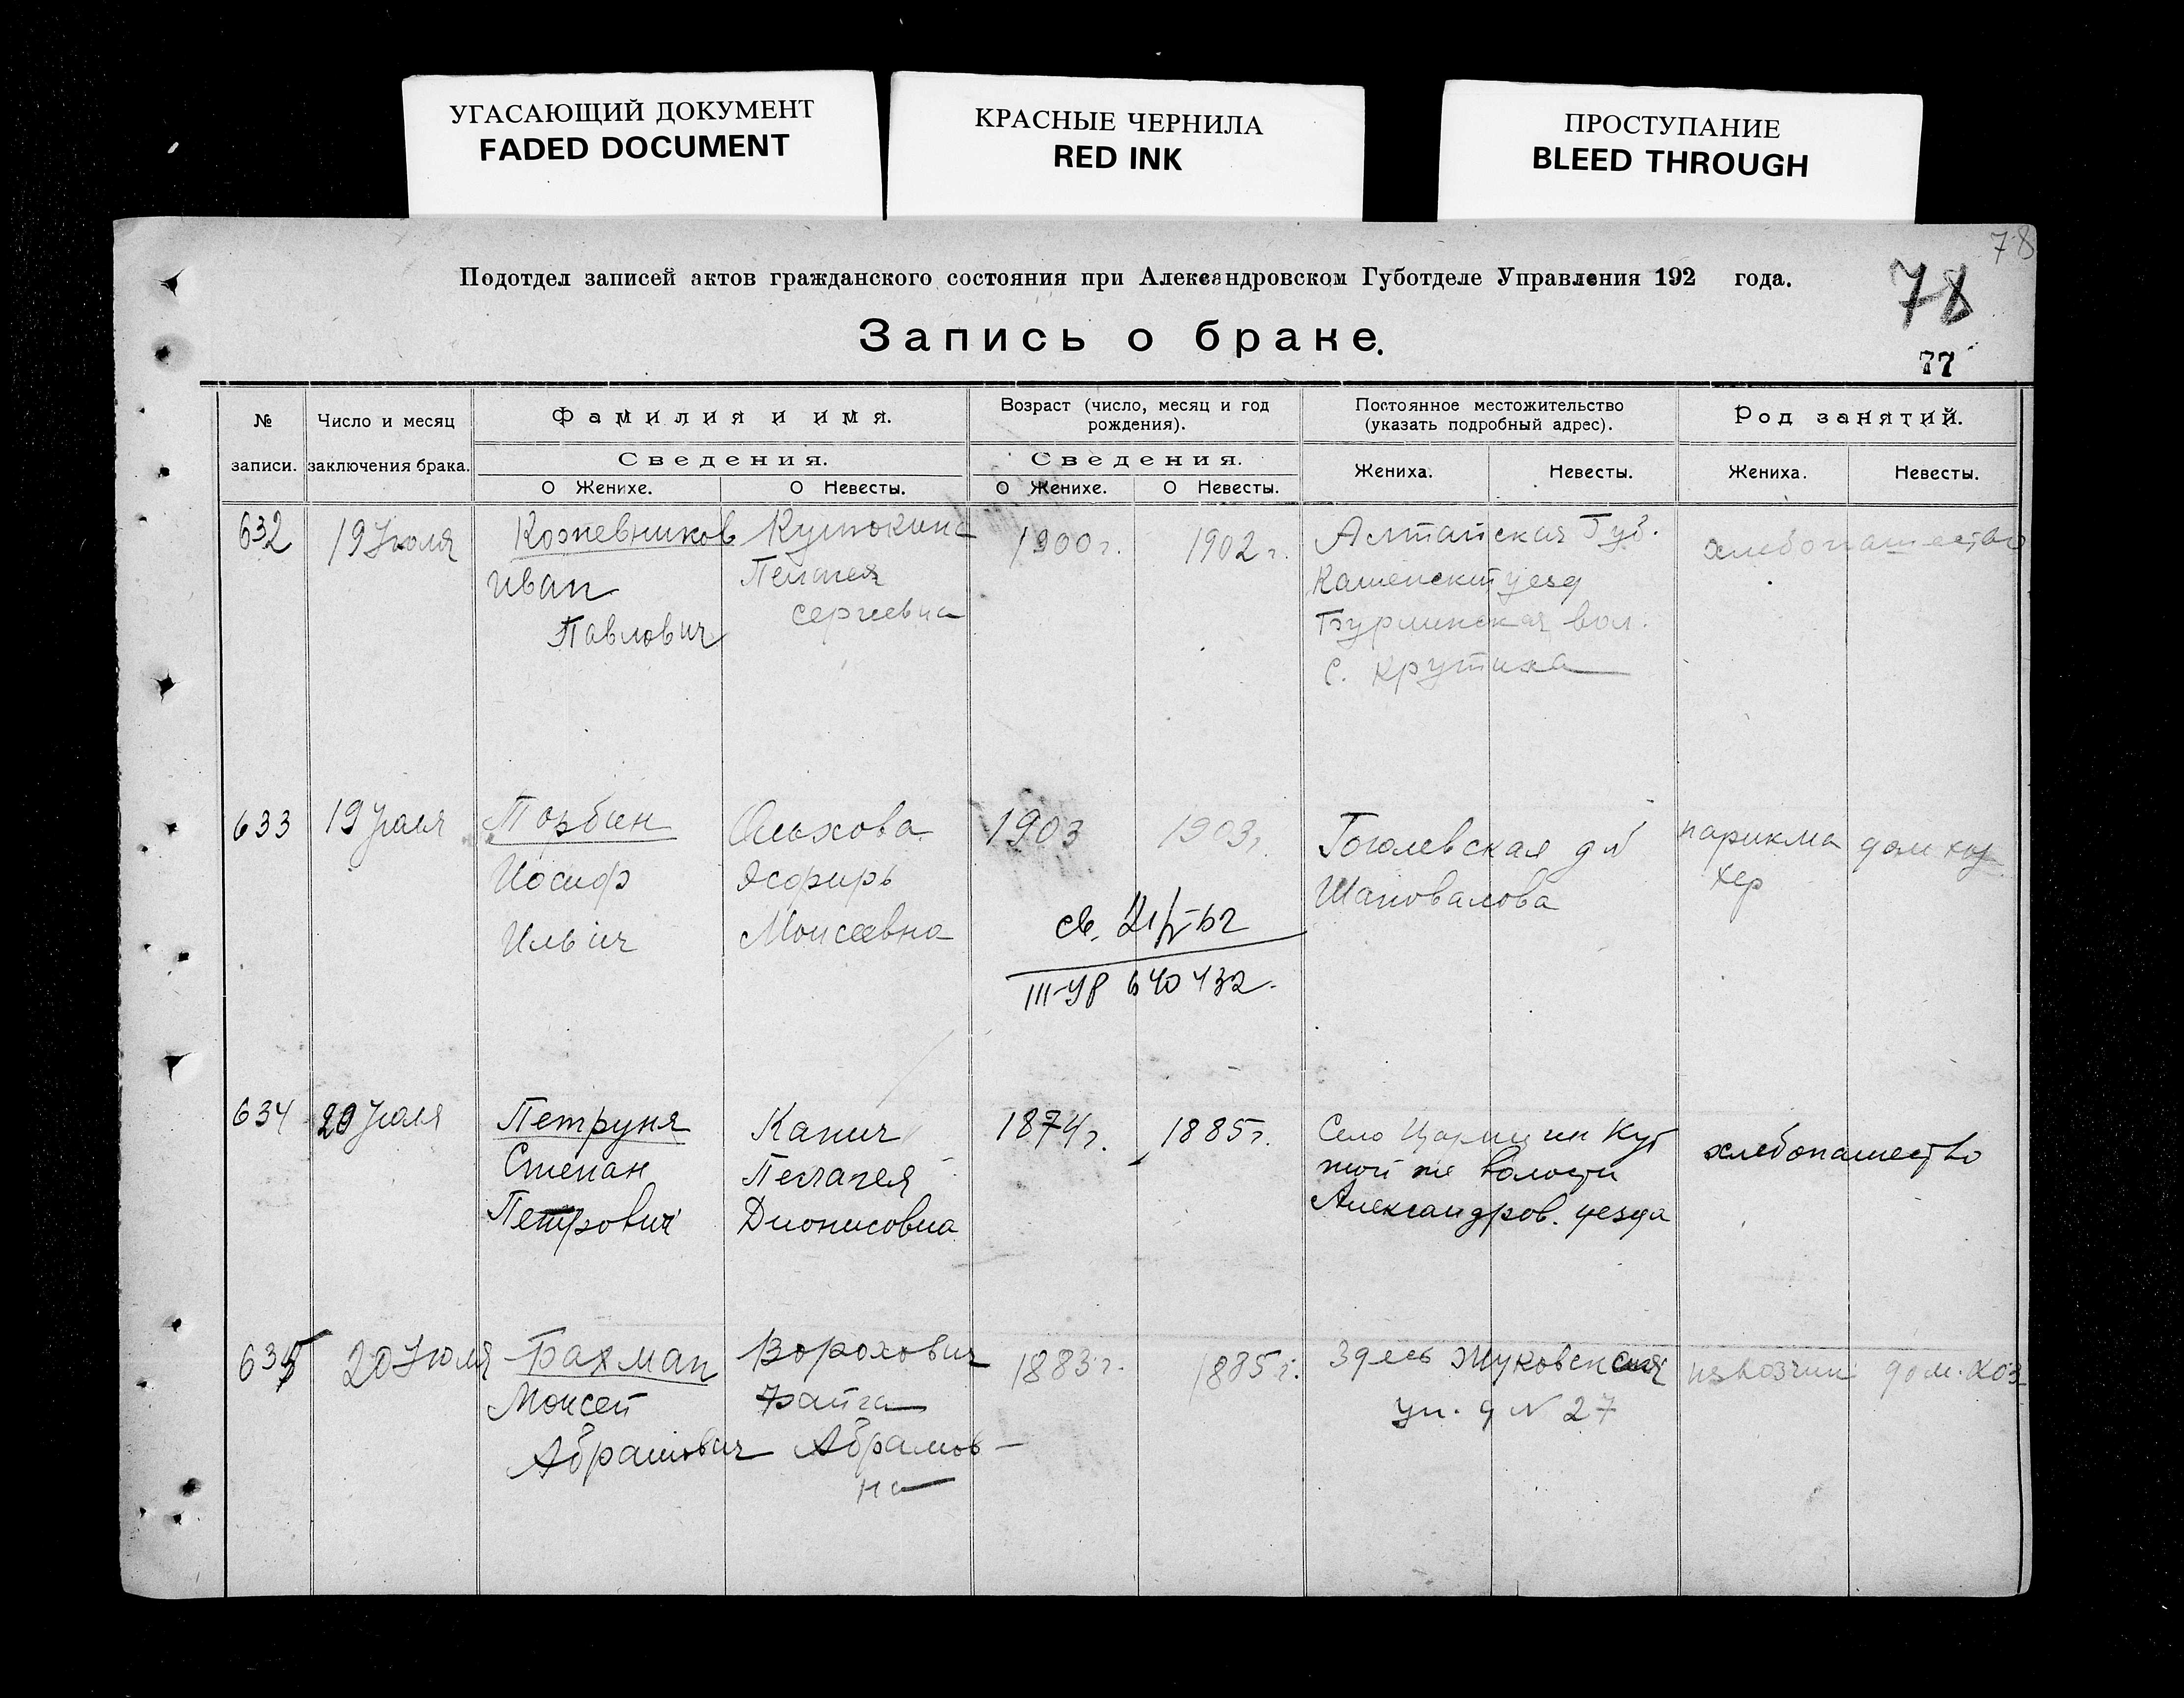 УГАСАЮЩИЙ ДОКУМЕНТ
FADED DOCUMENT
КРАСНЫЕ ЧЕРНИЛА
RED INK
ПРОСТУПАНИЕ
BLEED THROUGH
78
78
77
Подотдел записей актов гражданского состояния при Александровском Губотделе Управления 192 года.
Запись о браке.
№ записи.
Число и месяц заключения брака.
Фамилия и имя.
Сведения.
О Женихе.
О Невесты.
Возраст (число, месяц и год рождения).
Сведения.
О Женихе.
О Невесты.
Постоянное местожительство (указать подробный адрес).
Жениха.
Невесты.
Род занятий.
Жениха.
Невесты.
632
19 Июля
Кожевников
Иван
Павлович
Пелагея
Сергиевна
1900 г.
1902 г.
Алтайская Губ.
Каменский уезд
Бурлинская вол.
с. Крутиха
хлебопашество
633
19 Июля
Торбин
Иосиф
Ильич
Ольхова
Эсфирь
Моисеевна
1903
1903 г.
св.
III-УР 640432.
Гоголевская д №
Шаповалова
парикма
хер
дом хоз
634
20 Июля
Петруня
Степан
Петрович
Капич
Пелагея
Дионисовна
1874 г.
1885 г.
Село Царицын Кут
той же волости
Александров. уезда
хлебопашество
635
20 Июля
Бахман
Моисей
Абрамович
Ворохович
Файга
Абрамов-
на
1883 г.
1885 г.
Здесь Жуковская
ул. д № 27
извозчик
дом. хоз